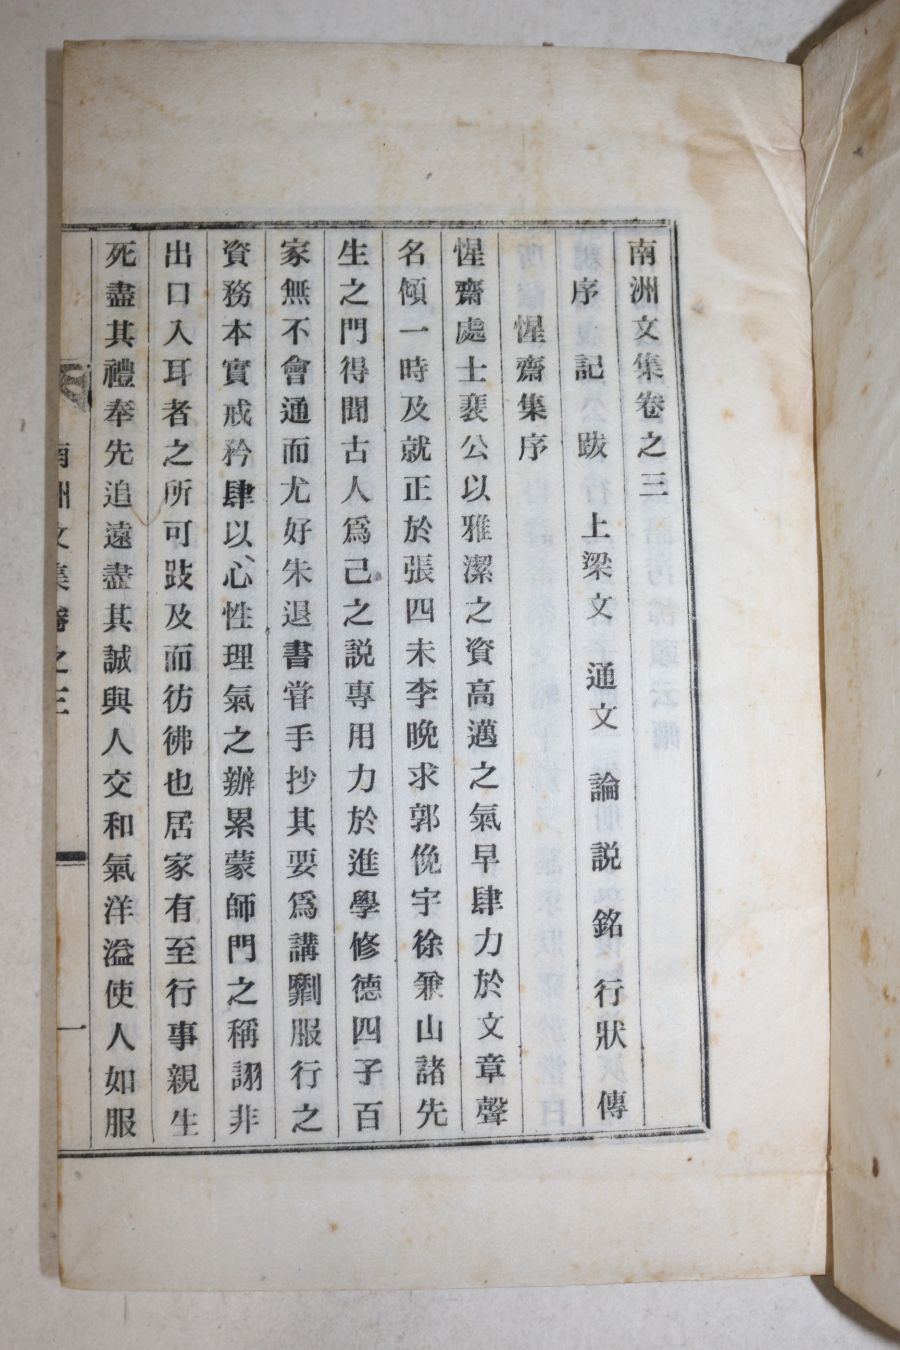 南洲文集卷之三
序 記 跋 上梁文 通文 論 説 銘 行狀 傳
惺齋集序
惺齋處士裴公以雅潔之資高邁之氣早肆力於文章聲
名傾一時及就正於張四未李晩求郭俛宇徐兼山諸先
生之門得聞古人爲己之説專用力於進學修德四子百
家無不會通而尤好朱退書甞手抄其要爲講劘服行之
資務本實戒矜肆以心性理氣之辦累蒙師門之稱詡非
出口入耳者之所可跂及而彷彿也居家有至行事親生
死盡其禮奉先追遠盡其誠與人交和氣洋溢使人如服
南洲文集卷之三
一